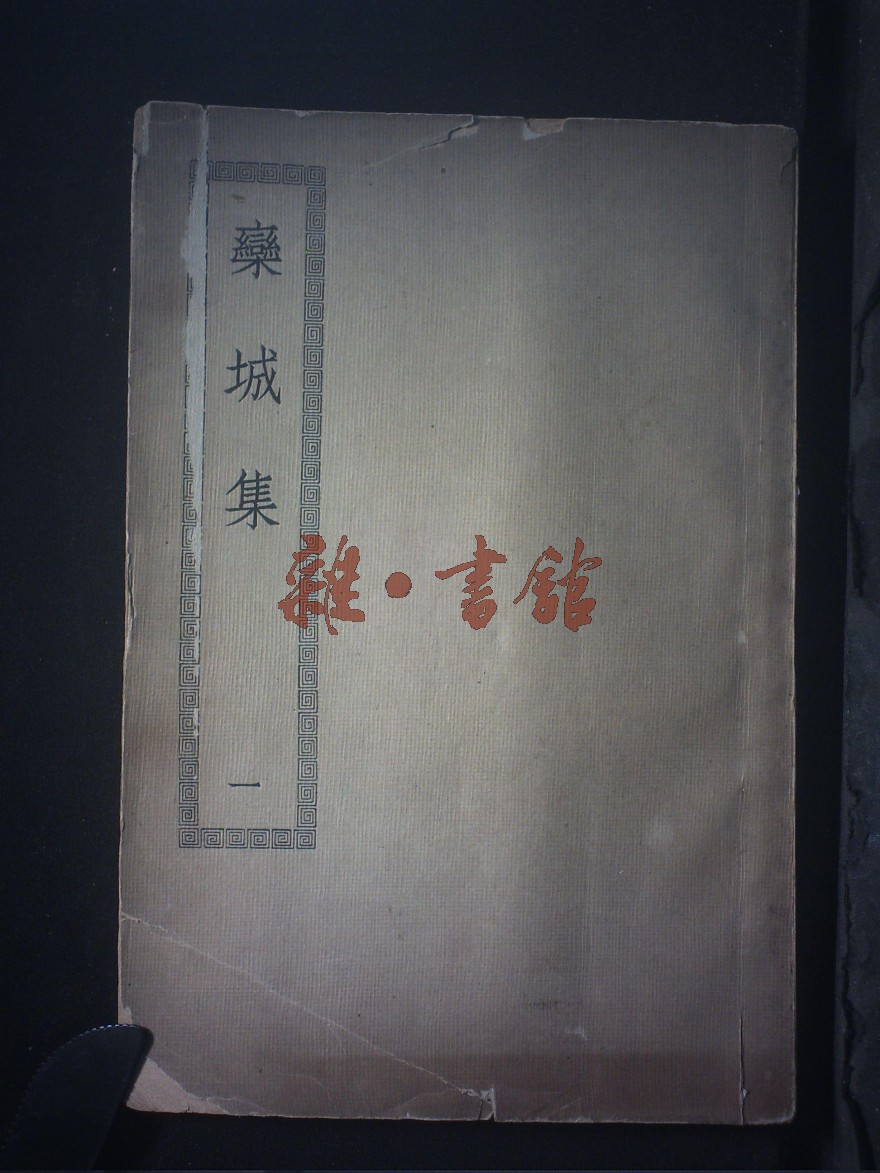 欒城集
一
雜·書館